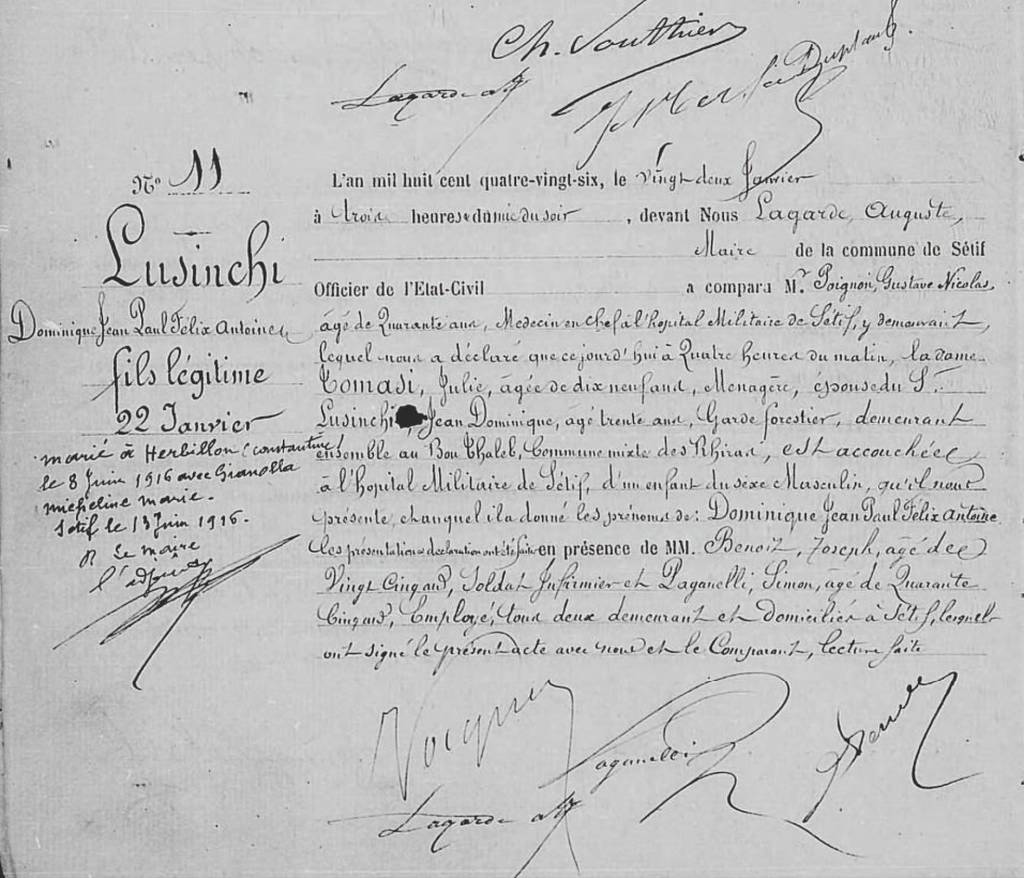 Ch. Southier
Lagarde
N° 11
Lusinchi
Dominique Jean Paul Félix Antoine
fils légitime
22 Janvier
marié à Herbillon (Constantine)
le 8 Juin 1916 avec Gianolla
Micheline Marie.
Sétif le 13 Juin 1916.
Le Maire
L'an mil huit cent quatre-vingt-six, le Vingt deux Janvier
à trois heures & demie du soir, devant Nous Lagarde, Auguste,
Maire de la commune de Sétif
Officier de l'Etat-Civil a comparu Mr. Poignon, Gustave Nicolas,
âgé de Quarante ans, Medecin en chef à l'hopital Militaire de Sétif, y demeurant,
lequel nous a déclaré que ce jourd'hui à Quatre heures du matin, la dame
Tomasi, Julie, âgée de dix neuf ans, Menagère, épouse du Sr.
Lusinchi, Jean Dominique, âgé trente ans, Garde forestier, demeurant
ensemble au Bou Thaleb, Commune mixte des Rhiras, est accouchée
à l'hopital Militaire de Sétif, d'un enfant du séxe Masculin, qu'il nous
présente, et auquel il a donné les prénoms de : Dominique Jean Paul Félix Antoine
Les présentation & déclaration ont été faites en présence de MM. Benoit, Joseph, âgé de
Vingt Cinq ans, Soldat Infirmier et Paganelli, Simon, âgé de Quarante
Cinq ans, Employé, tous deux demeurant et domiciliés à Sétif, lesquels
ont signé le présent acte avec nous et le Comparant, lecture faite
Poignon
Paganelli
Benoit
Lagarde